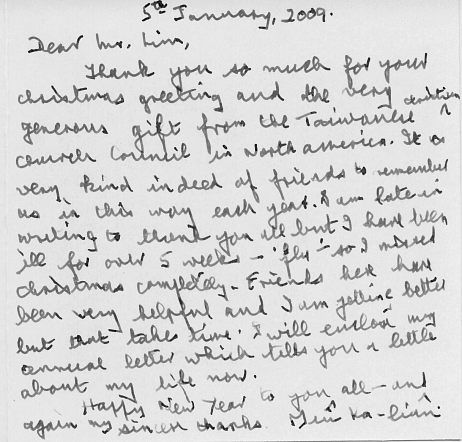 5th January, 2009.
Dear Mr. Lim,
Thank you so much for your
christmas greeting and the very christian
generous gift from the Taiwanese ^
church Council in North America. It is
very kind indeed of friends to remember
us in this way each year. I am late in
writing to thank you all but I have been
ill for over 5 weeks - 'flu' - so I missed
christmas completely. Friends here have
been very helpful and I am getting better
but that takes time. I will enclose my
annual letter which tells you a little
about my life now.
Happy New Year to you all - and
again my sincere thanks. Ka-liân.